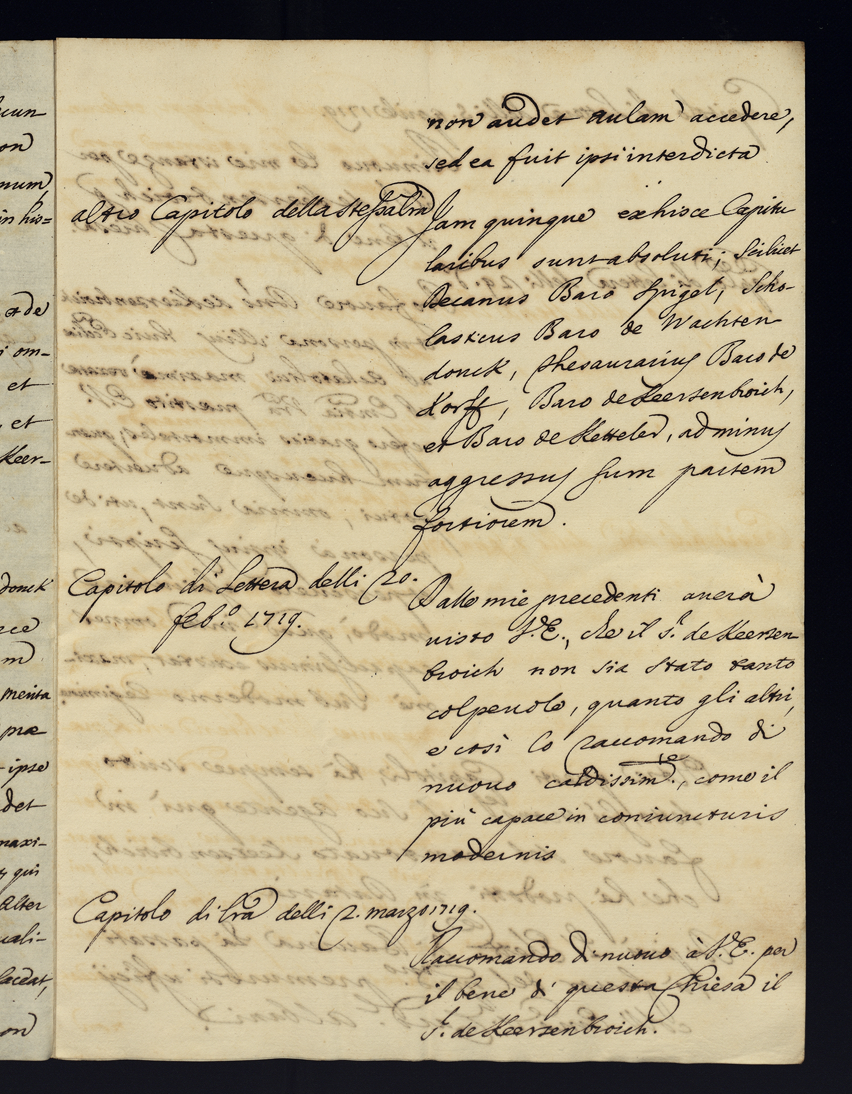 non audet aulam accedere,
sed ea fuit ipsi interdicta
altro Capitolo della stessa lra
Jam quinque ex hisce Capitu
laribus sunt absoluti; Scilicet
Decanus Baro Spigel, Scho-
lasticus Baro de Wachten
donck, Thesaurarius Baro de
Korff, Baro de Keersenbroich,
et Baro de Ketteler, ad minus
aggressus sum partem
fortiorem.
Capitolo di Lettera delli 20.
feb.º 1719.
Dalle mie precedenti auerà
uisto V.E., che il S.r de Keersen
broich non sia stato tanto
colpeuole, quanto gli altri,
e così lo raccomando di
nuouo caldissim.te, come il
più capace in coniuncturis
modernis
Capitolo di lrã delli 2. marzo 1719.
Raccomando di nuouo à V.E. per
il bene di questa Chiesa il
S.r de Keersenbroich.
cun
on
num,
in his=
et de
i om-
et
, et
Keer-
donck
m
menta
præ
ipse
det
maxi-
qui
alter
uali-
laceat,
on